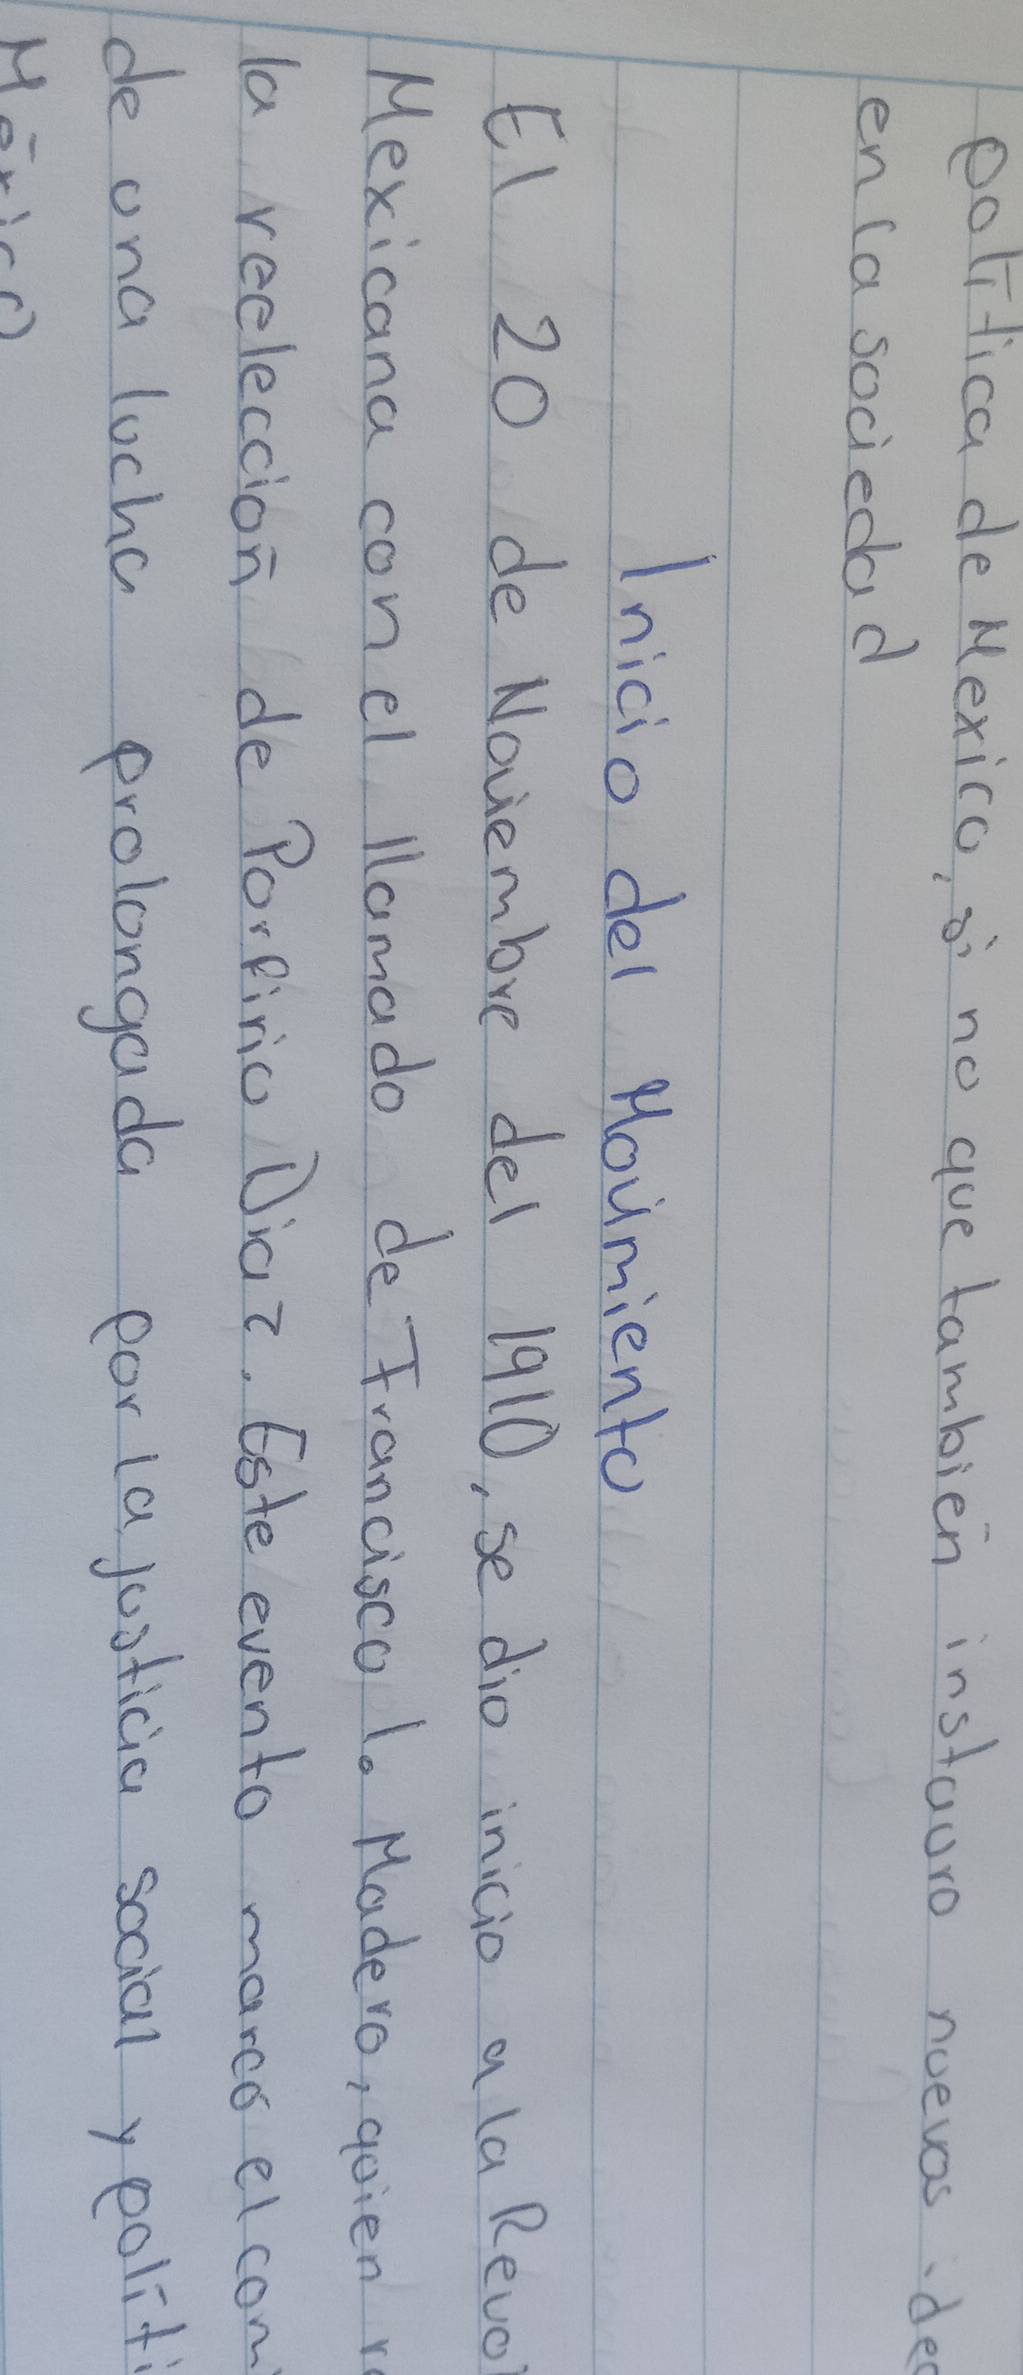 política de Mexico, si no que también instauro nuevas idea
en la sociedad
Inicio del Movimiento
El 20 de Noviembre del 1910, se dio inicio a la Revol
Mexicana con el llamado de Francisco I. Madero, quien re
la reelección de Porfirio Diaz. Este evento marcó el comi
de una lucha prolongada por la justicia social y políti
México